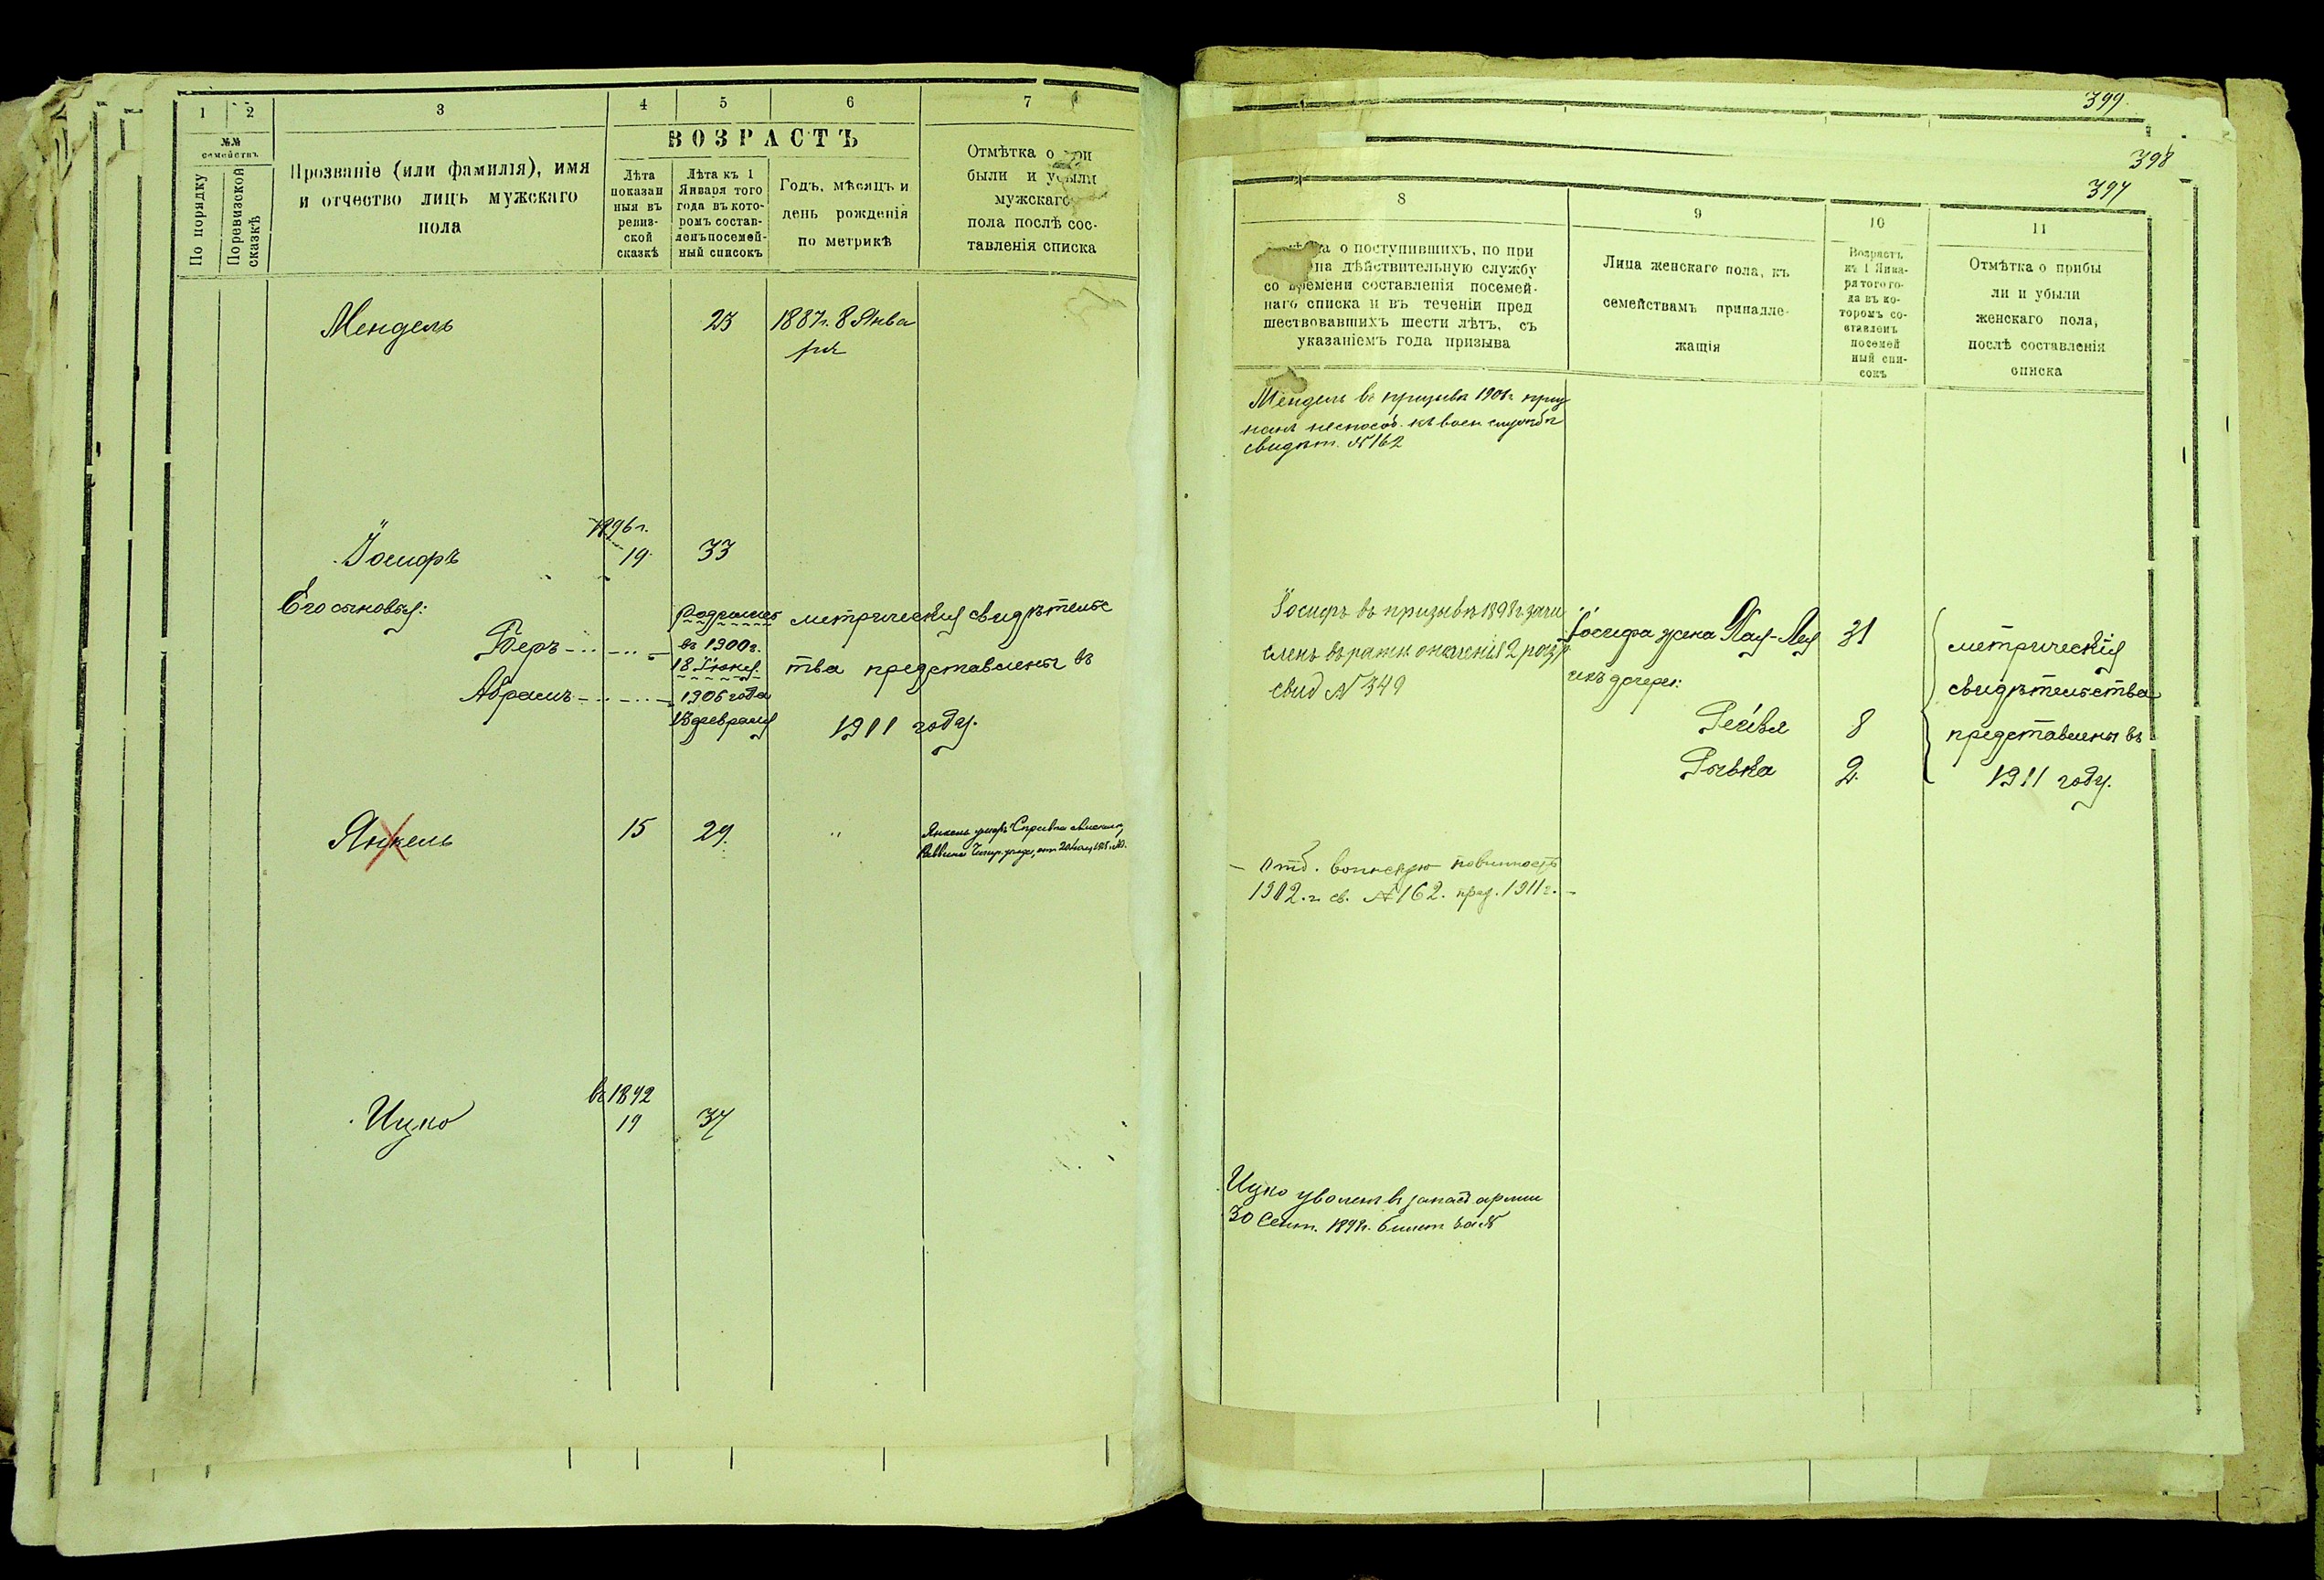 1 2 3 4 5 6 7
№№ семействъ
По порядку
По ревизской сказкѣ
Прозваніе (или фамилія), имя
и отчество лицъ мужскаго
пола
ВОЗРАСТЪ
Лѣта
показан
ныя въ
ревиз-
ской
сказкѣ
Лѣта къ 1
Января того
года въ кото-
ромъ состав-
ленъ посемей-
ный списокъ
Годъ, мѣсяцъ и
день рожденія
по метрикѣ
Отмѣтка о при
были и убыли
мужскаго
пола послѣ сос-
тавленія списка
Мендель 23 1887г. 8 Янва
ря
1896г.
Іосифъ 19 33
Его сыновья:
Родились
Беръ въ 1900г.
18 Іюня
Абрамъ 1906 года
18 февраля
метрическія свидѣтельс
тва представлены въ
1911 году.
Янкель 15 29 "
Янкель умеръ Справка
въ 1892
Ицко 19 37
399
398
397
8 9 10 11
о поступившихъ, по при
на дѣйствительную службу
со времени составленія посемей-
наго списка и въ теченіи пред
шествовавшихъ шести лѣтъ, съ
указаніемъ года призыва
Лица женскаго пола, къ
семействамъ принадле-
жащія
Возрастъ
къ 1 Янва-
ря того го-
да въ ко-
торомъ со-
ставленъ
посемей
ный спи-
сокъ
Отмѣтка о прибы
ли и убыли
женскаго пола,
послѣ составленія
списка
Мендель въ призывѣ 1908г приз
нанъ неспособ. къ воен. службѣ
свидѣт. №162
Іосифъ въ призывѣ 1898г. зачи
сленъ въ ратн. ополченія 2 разр.
свид №349
Іосифа жена Хая-Лея 31
ихъ дочери:
Рейвя 8
Рывка 2
метрическія
свидѣтельства
представлены въ
1911 году.
Отб. воинскую повинность
1902.г. св. №162. пред. 1911г.
Ицко уволенъ въ запасъ арміи
30 Сент. 1897г. билетъ за №